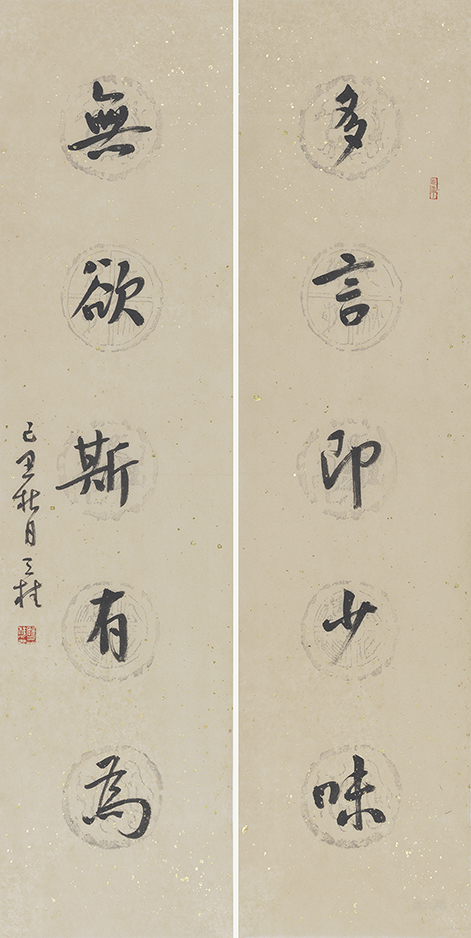 多言即少味
無欲斯有為
己丑秋月 天柱